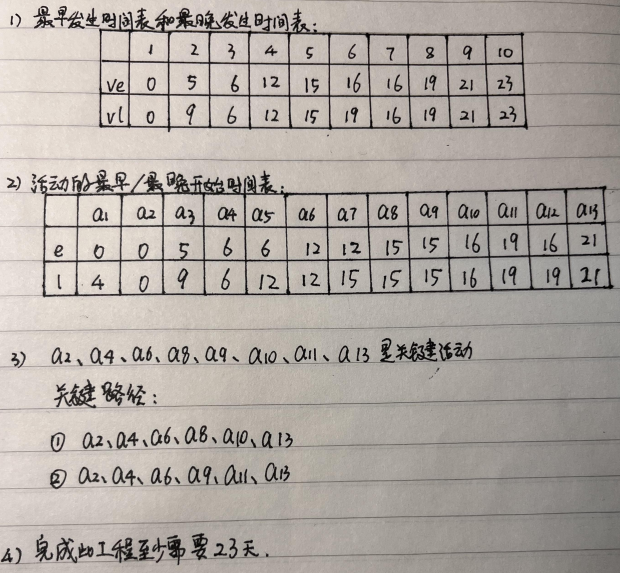 1) 最早发生时间表和最晚发生时间表:
1 2 3 4 5 6 7 8 9 10
ve 0 5 6 12 15 16 16 19 21 23
vl 0 9 6 12 15 19 16 19 21 23
2) 活动的最早/最晚开始时间表:
a1 a2 a3 a4 a5 a6 a7 a8 a9 a10 a11 a12 a13
e 0 0 5 6 6 12 12 15 15 16 19 16 21
l 4 0 9 6 12 12 15 15 15 16 19 19 21
3) a2、a4、a6、a8、a9、a10、a11、a13 是关键活动
关键路径:
① a2、a4、a6、a8、a10、a13
② a2、a4、a6、a9、a11、a13
4) 完成此工程至少需要23天.